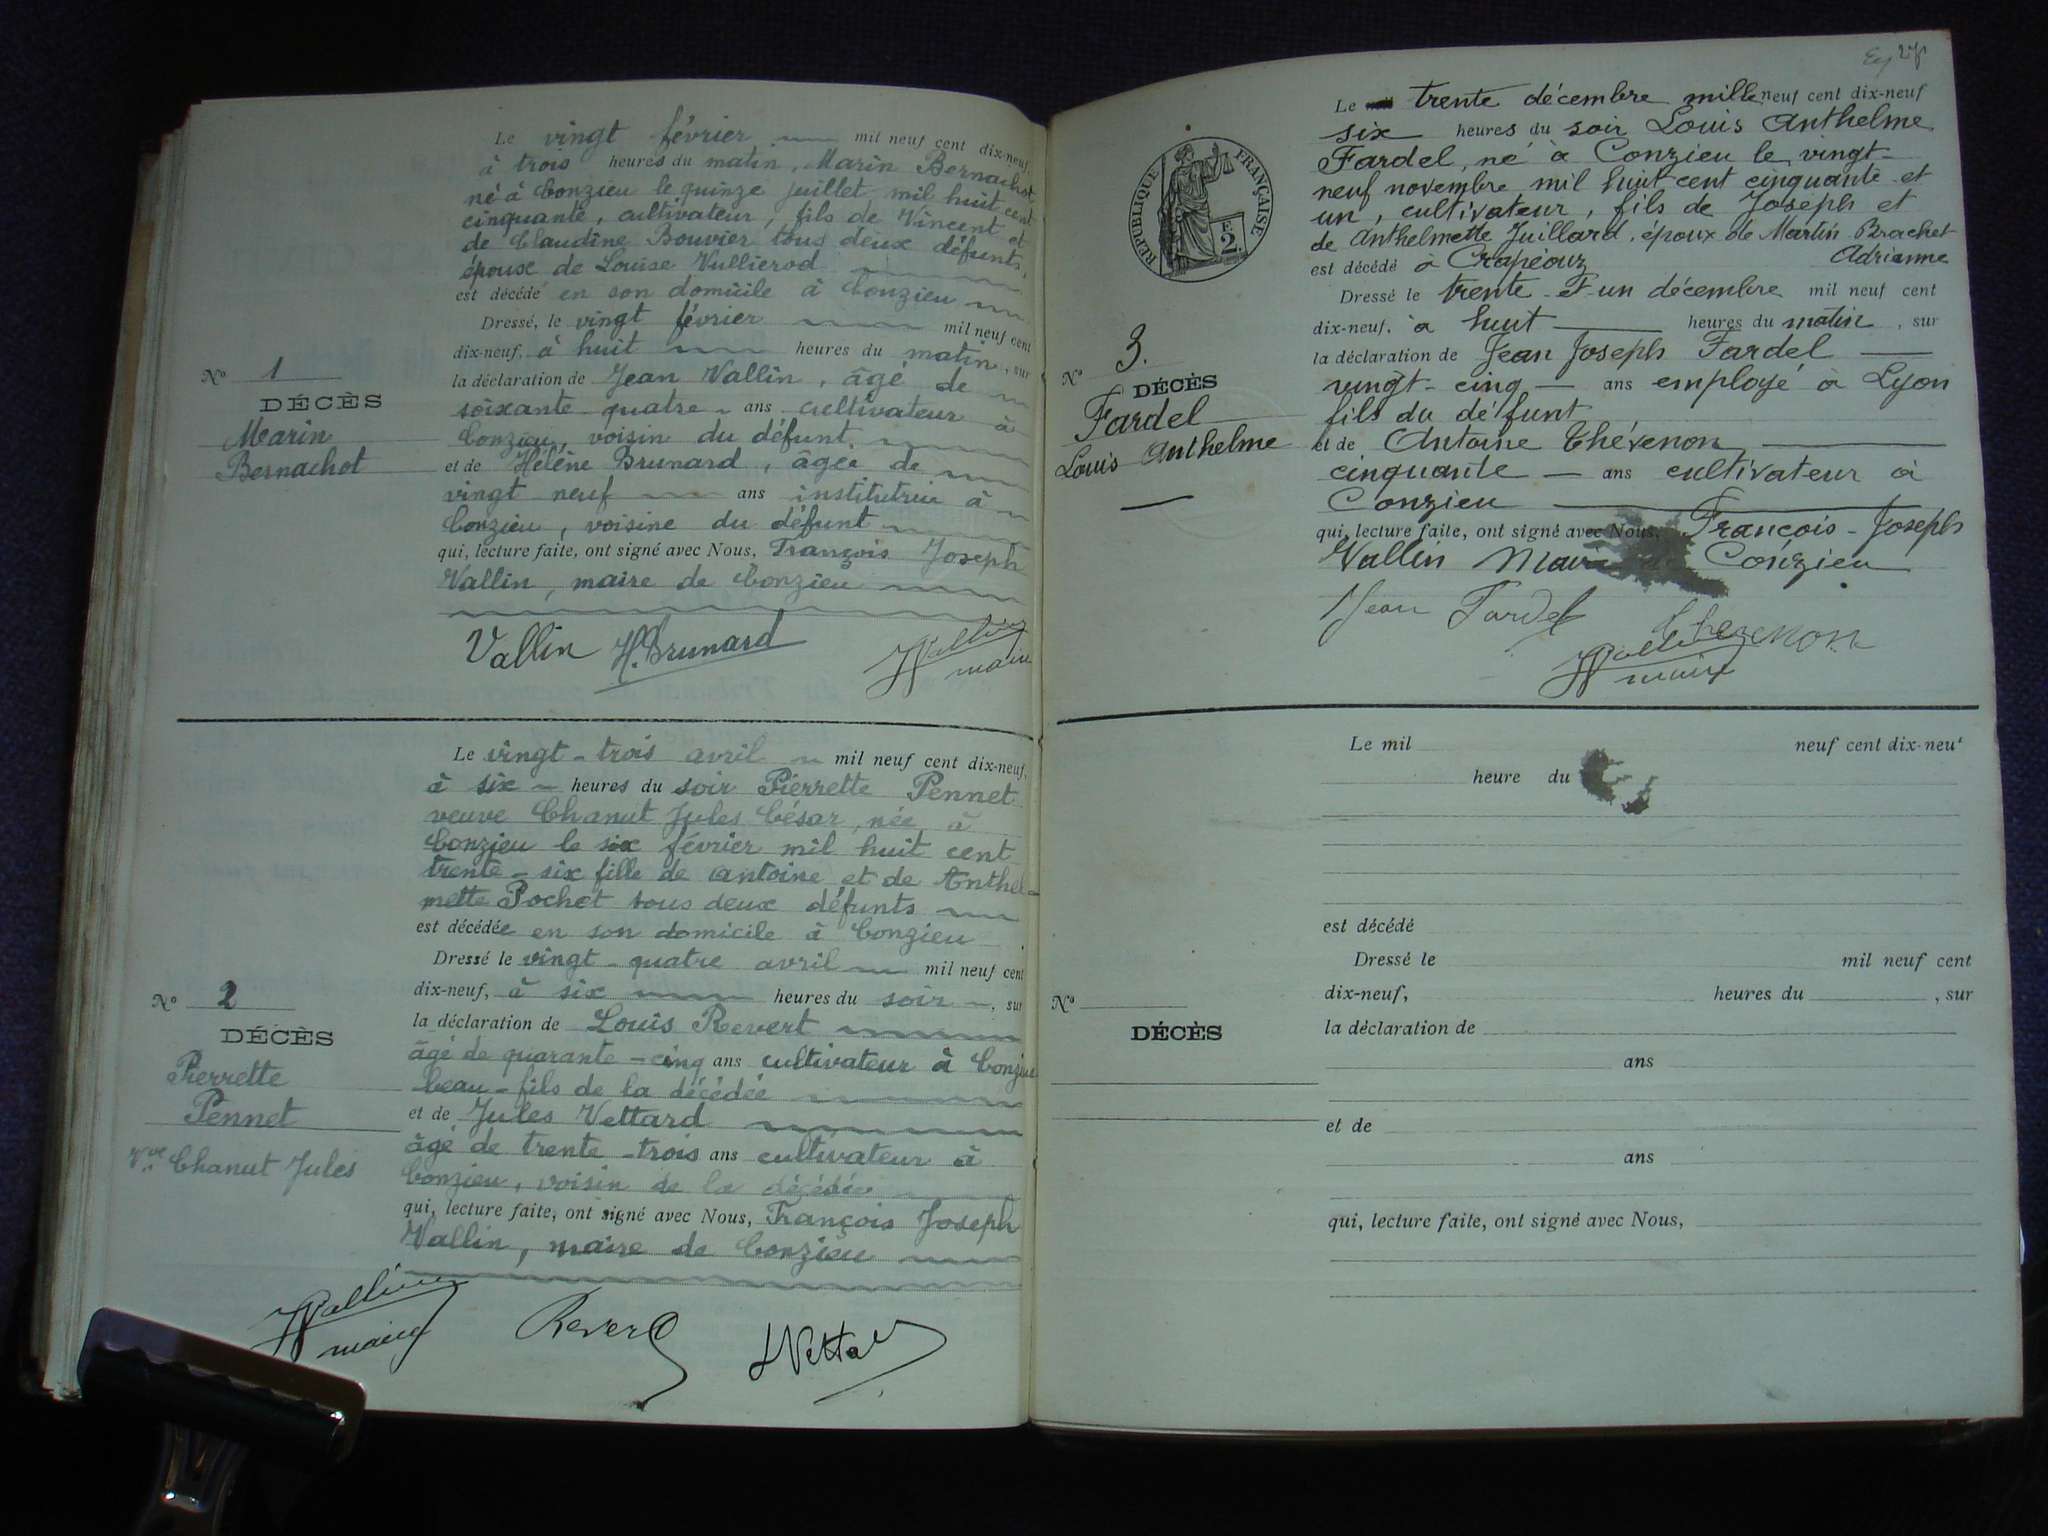 Le vingt février mil neuf cent dix-neuf
à trois heures du matin, Marin Bernachot
né à Conzieu le quinze juillet mil huit cent
cinquante, cultivateur, fils de Vincent et
de Claudine Bouvier tous deux défunts,
époux de Louise Vullierod
est décédé en son domicile à Conzieu
Dressé, le vingt février mil neuf cent
dix-neuf, à huit heures du matin, sur
la déclaration de Jean Vallin, âgé de
soixante quatre ans cultivateur à
Conzieu, voisin du défunt,
et de Hélène Brunard, âgée de
vingt neuf ans institutrice à
Conzieu, voisine du défunt
qui, lecture faite, ont signé avec Nous, François Joseph
Vallin, maire de Conzieu
Vallin H. Brunard Vallin
maire
N° 1
DÉCÈS
Marin
Bernachot
Le vingt-trois avril mil neuf cent dix-neuf,
à six heures du soir Pierrette Pennet
veuve Chanut Jules César, née à
Conzieu le six février mil huit cent
trente-six fille de Antoine et de Anthel-
mette Pochet tous deux défunts
est décédée en son domicile à Conzieu
Dressé le vingt-quatre avril mil neuf cent
dix-neuf, à six heures du soir, sur
la déclaration de Louis Revert
âgé de quarante-cinq ans cultivateur à Conzieu
beau-fils de la décédée
et de Jules Vettard
âgé de trente-trois ans cultivateur à
Conzieu, voisin de la décédée
qui, lecture faite, ont signé avec Nous, François Joseph
Vallin, maire de Conzieu
Vallin
maire
Revert
Vettard
N° 2
DÉCÈS
Pierrette
Pennet
Vve Chanut Jules
27
RÉPUBLIQUE FRANÇAISE
2
Le trente décembre mille neuf cent dix-neuf
six heures du soir Louis Anthelme
Fardel, né à Conzieu le vingt-
neuf novembre mil huit cent cinquante et
un, cultivateur, fils de Joseph et
de Anthelmette Juillard, époux de Martin Brachet
Adrianne
est décédé à Crapéouz
Dressé le trente-et-un décembre mil neuf cent
dix-neuf, à huit heures du matin, sur
la déclaration de Jean Joseph Fardel
vingt-cinq ans employé à Lyon
fils du défunt
et de Antoine Thévenon
cinquante ans cultivateur à
Conzieu
qui, lecture faite, ont signé avec Nous, François-Joseph
Vallin Conzieu
Jean Fardel Thevenon
Vallin
maire
N° 3.
DÉCÈS
Fardel
Louis Anthelme
Le mil neuf cent dix-neuf
heure du
est décédé
Dressé le mil neuf cent
dix-neuf, heures du , sur
la déclaration de
ans
et de
ans
qui, lecture faite, ont signé avec Nous,
N°
DÉCÈS